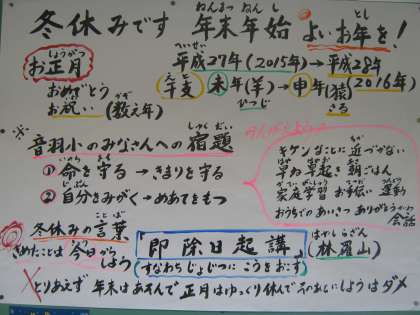 冬休みです 年末年始 よいお年を!
ねんまつ ねんし とし
へいせい
平成27年(2015年)→平成28年(2016年)
しょうがつ
お正月
おめでとう
お祝い(数え年)
えと
干支 未年(羊)→申年(猿)
ひつじ さる
※ 音羽小のみなさんへの宿題
しゅくだい
① 命を守る → きまりを守る
いのち まも
② 自分をみがく → めあてをもつ
じぶん
キケンなことに 近づかない
早ね早起き 朝ごはん
家庭学習 お手伝い 運動
おうちでのあいさつ ありがとう 会話
冬休みの言葉
ことば
きめたことは 今日からしよう
即 除日起講 (林羅山)
はやしらざん
(すなわち じょじつに こうをおこす)
×とりあえず 年末はあそんで 正月はゆっくり休んで そのあとにしようはダメ